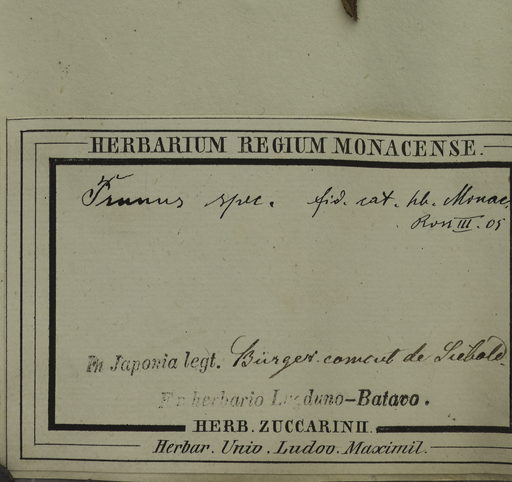 HERBARIUM REGIUM MONACENSE.
Prunus spec. fid. cat. hb. Monac.
III. 05
In Japonia legt. Bürger comeut de Siebold.
E herbario Lugduno-Batavo.
HERB. ZUCCARINII.
Herbar. Univ. Ludov. Maximil.